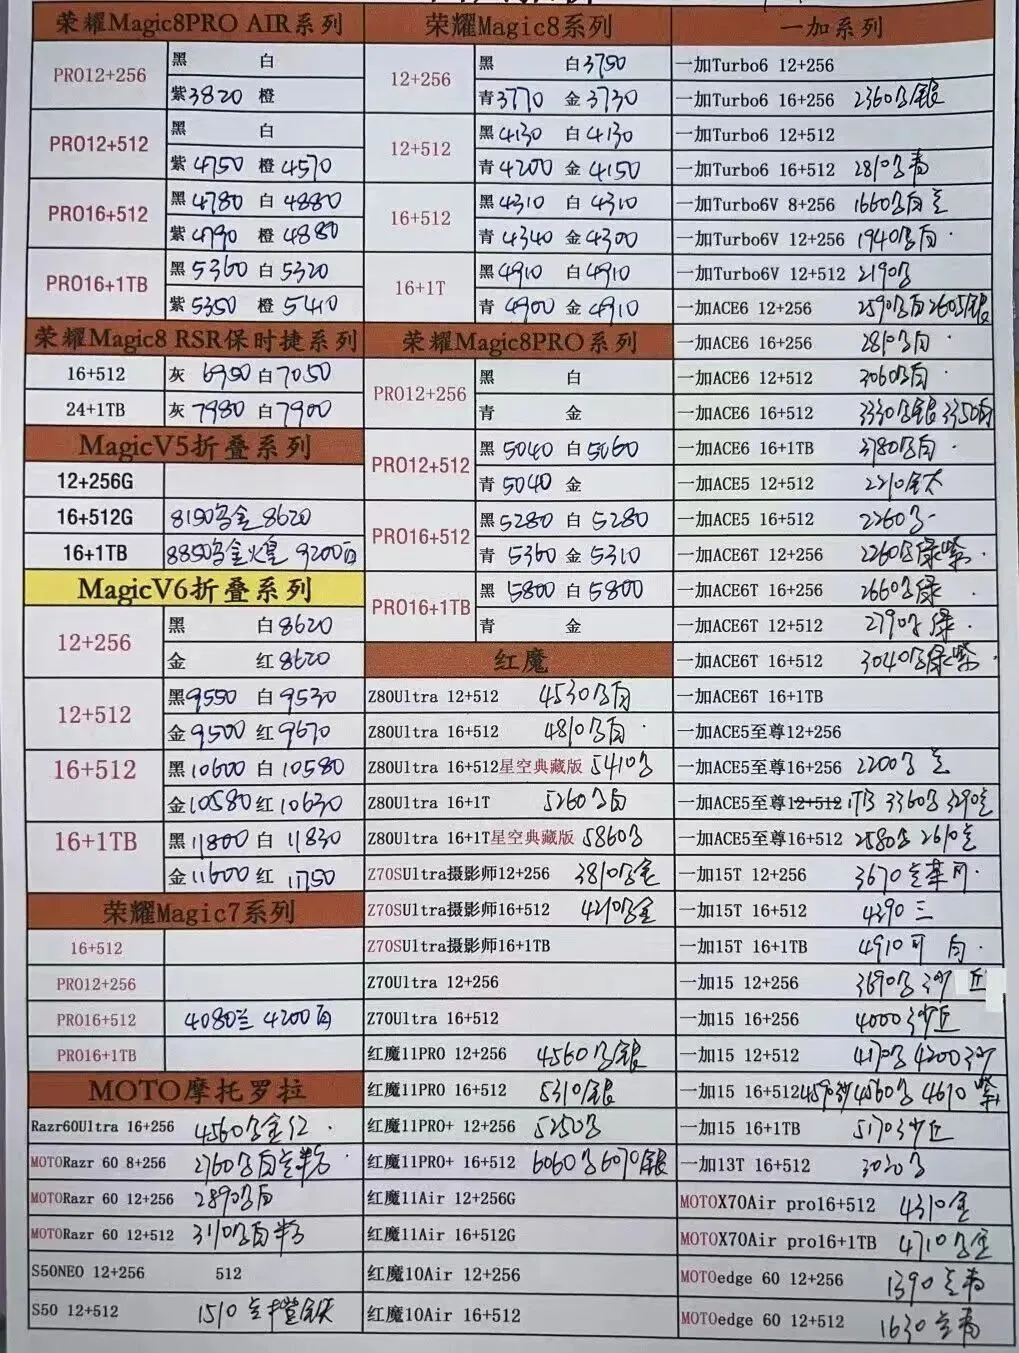 荣耀Magic8PRO AIR系列
PRO12+256 黑 白
紫3820 橙
PRO12+512 黑 白
紫4750 橙4570
PRO16+512 黑4780 白4880
紫4790 橙4880
PRO16+1TB 黑5360 白5320
紫5350 橙5410
荣耀Magic8 RSR保时捷系列
16+512 灰 6950 白7050
24+1TB 灰 7980 白7900
MagicV5折叠系列
12+256G
16+512G 8150 金 8620
16+1TB 8850 9200白
MagicV6折叠系列
12+256 黑 白8620
金 红8620
12+512 黑9550 白9530
金9500 红9670
16+512 黑10600 白10580
金10580 红10630
16+1TB 黑11800 白11830
金11600 红11750
荣耀Magic7系列
16+512
PRO12+256
PRO16+512 4080兰 4200白
PRO16+1TB
MOTO摩托罗拉
Razr60Ultra 16+256 4560
MOTORazr 60 8+256 2760
MOTORazr 60 12+256 2890
MOTORazr 60 12+512 3110
S50NEO 12+256 512
S50 12+512 1510
荣耀Magic8系列
12+256 黑 白3750
青3770 金3730
12+512 黑4130 白4130
青4200 金4150
16+512 黑4310 白4310
青4340 金4300
16+1T 黑4910 白4910
青4900 金4910
荣耀Magic8PRO系列
PRO12+256 黑 白
青 金
PRO12+512 黑5040 白5060
青5040 金
PRO16+512 黑5280 白5280
青5360 金5310
PRO16+1TB 黑5800 白5800
青 金
红魔
Z80Ultra 12+512 4530
Z80Ultra 16+512 4810
Z80Ultra 16+512星空典藏版 5410
Z80Ultra 16+1T 5260
Z80Ultra 16+1T星空典藏版 5860
Z70SUltra摄影师12+256 3810
Z70SUltra摄影师16+512 4210
Z70SUltra摄影师16+1TB
Z70Ultra 12+256
Z70Ultra 16+512
红魔11PRO 12+256 4560 银
红魔11PRO 16+512 5310 银
红魔11PRO+ 12+256 5250
红魔11PRO+ 16+512 6060 6070 银
红魔11Air 12+256G
红魔11Air 16+512G
红魔10Air 12+256
红魔10Air 16+512
一加系列
一加Turbo6 12+256
一加Turbo6 16+256 2360 银
一加Turbo6 12+512
一加Turbo6 16+512 2810 青
一加Turbo6V 8+256 1660
一加Turbo6V 12+256 1940
一加Turbo6V 12+512 2190
一加ACE6 12+256 2590 2605银
一加ACE6 16+256 2810
一加ACE6 12+512 3060
一加ACE6 16+512 3330 银 3350
一加ACE6 16+1TB 3780
一加ACE5 12+512 2210
一加ACE5 16+512 2260
一加ACE6T 12+256 2260 绿紫
一加ACE6T 16+256 2660 绿
一加ACE6T 12+512 2790 绿
一加ACE6T 16+512 3040 绿紫
一加ACE6T 16+1TB
一加ACE5至尊12+256
一加ACE5至尊16+256 2200
一加ACE5至尊12+512 1TB 3360 3290
一加ACE5至尊16+512 2580 2610
一加15T 12+256 3670
一加15T 16+512 4390
一加15T 16+1TB 4910
一加15 12+256 3690
一加15 16+256 4000
一加15 12+512 4170 4200
一加15 16+512 4590 4560 4670 紫
一加15 16+1TB 5170
一加13T 16+512 3030
MOTOX70Air pro16+512 4310
MOTOX70Air pro16+1TB 4710
MOTOedge 60 12+256 1390
MOTOedge 60 12+512 1630